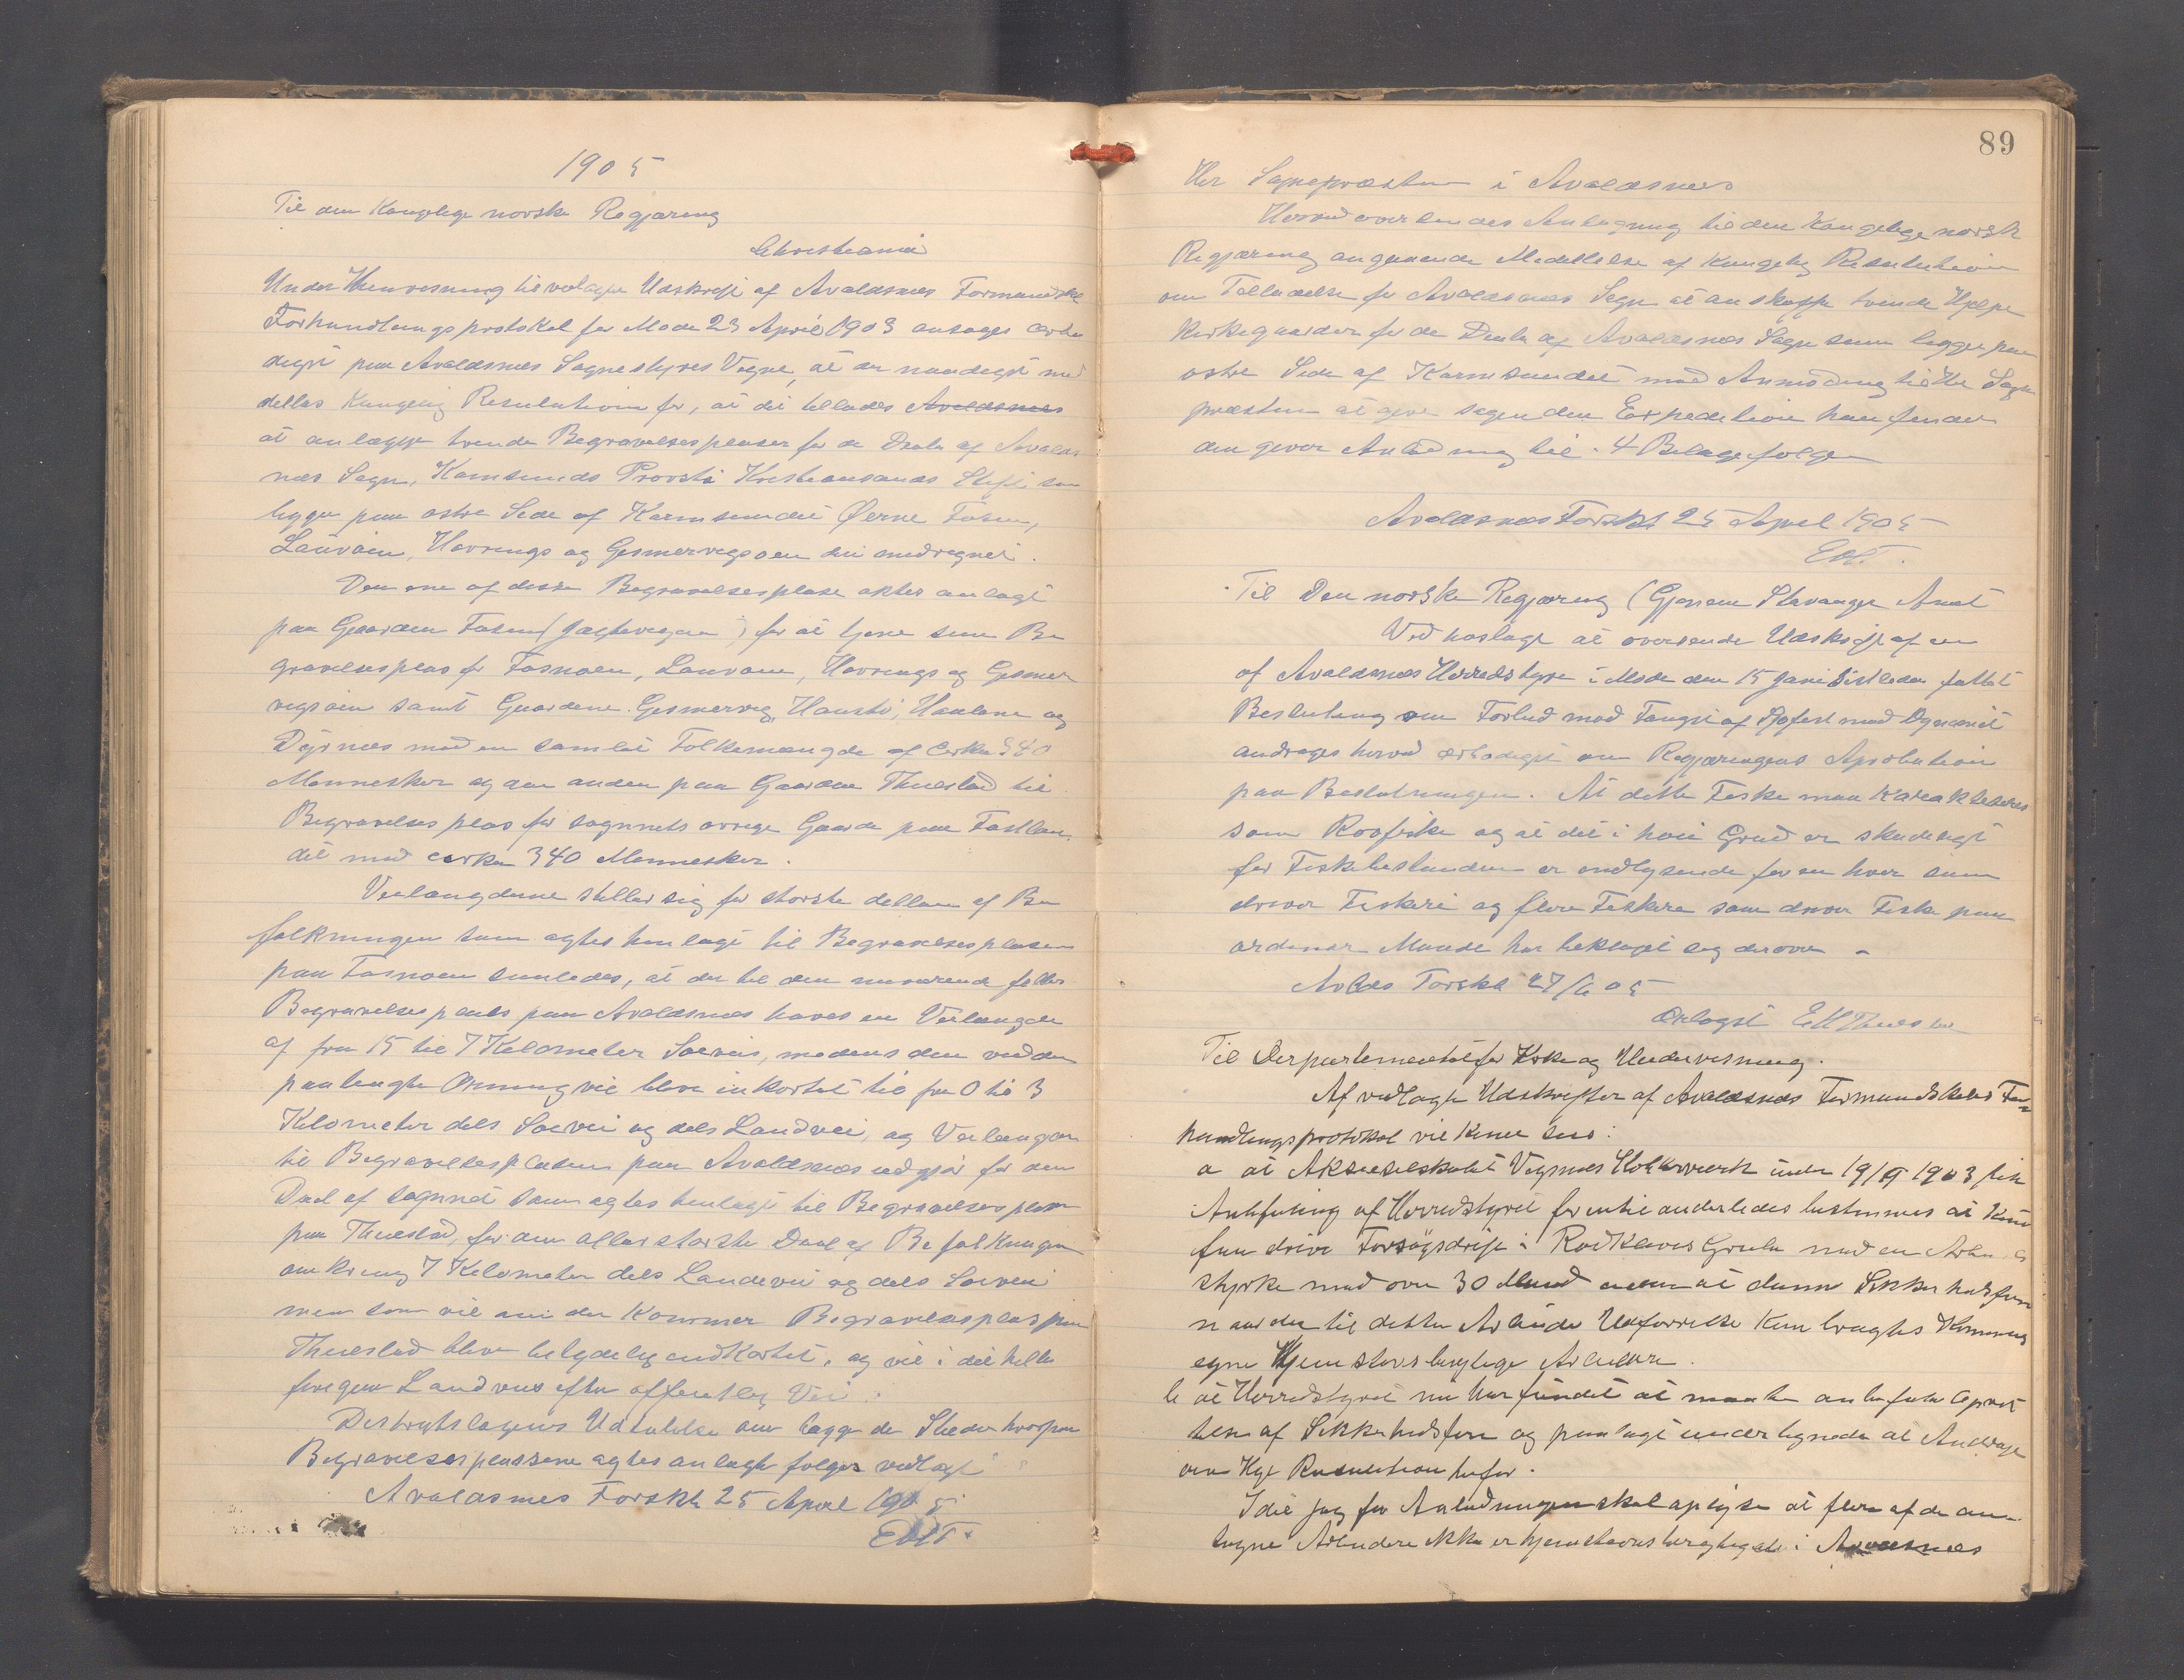 1905
Til den Kongelige norske Regjæring
Christeania
Under Henvisning til vedlagte Udskrift af Avaldsnes Formandskabs
Forhandlingsprotokol for Møde 23 April 1903 ansøges ærbø
digst paa Avaldsnes Sognestyres Vegne, at der naadigst med
deles Kongelig Resolution for, at det tillades Avaldsnes
at anlægge tvende Begravelsesplasser for de Dele af Avalds
nes Sogn, Karmsunds Provsti Kristiansands Stift som
ligger paa østre Side af Karmsundet Øerne Fosen,
Lauvøen, Vovrings og Gismervigsøen iberegnet.
Den ene af disse Begravelsesplase akter anlagt
paa Gaarden Fosen (Jagtevigen) for at tjene som Be
gravelsesplas for Fosnøen, Lauvøen, Vovrings og Gismer
vigsøen samt Gaardene Gismervig, Haustø, Haalene og
Dyrnes med en samlet Folkemængde af cirka 340
Mennesker og den anden paa Gaarden Thuestad til
Begravelsesplas for Sognets øvrige Gaarde paa Fastlan
det med cirka 340 Mennesker.
Veilængderne stiller sig for største delen af Be
folkningen som agtes henlagt til Begravelsesplasen
paa Fosnøen saaledes, at der til den nuværende fælles
Begravelsesplads paa Avaldsnes haves en Veilængde
af fra 15 til 7 Kilometer Søveis, medens den ved den
paatænkte Ordning vil blive inkortet til fra 0 til 3
Kilometer dels Søvei og dels Landvei, og Veilængden
til Begravelsespladsen paa Avaldsnes udgjør for den
Deel af Sognet som agtes henlagt til Begravelsesplassen
paa Thuestad, for den allerstørste Deel af Befolkningen
omkring 7 Kilometer dels Landevei og dels Søvei
men som vil naar der kommer Begravelsesplas paa
Thuestad blive betydelig indkortet, og vil i det hele
foregaa Landveis efter offentlig Vei.
Distriktslægens Udtalelse om begge de Steder hvorpaa
Begravelsesplassene agtes anlagte følger vedlagt
Avaldsnes Forskb 25 April 1905
EHT.
89
Hr Sognepræsten i Avaldsnes
Herved oversendes Andragning til den Kongelige norske
Regjæring angaaende Meddelelse af Kongelig Resolution
om Tilladelse for Avaldsnes Sogn at anskaffe tvende Hjælpe
kirkegaarder for de Dele af Avaldsnes Sogn som ligger paa
østre Side af Karmsundet med Anmodning til Hr Sogne
præsten at give sagen den Expedition han finder
den giver Anledning til. 4 Belage følger
Avaldsnes Forskb 25 April 1905
EHT.
Til Den norske Regjæring (Gjennem Stavanger Amt
Ved hoslagt at oversende Udskrift af en
af Avaldsnes Herredstyre i Møde den 15 Juni sistleden fattet
Beslutning om Forbud mod Fangst af med Dynamit
andrages herved ærbødigst om Regjæringens Aprobation
paa Beslutningen. At dette Fiske maa karakteriseres
som Rovfiske og at det i høi Grad er skadeligt
for Fiskebestanden er indlysende for en hver som
driver Fiskeri og flere Fiskere som driver Fiske paa
ordinær Maade har beklaget sig derover –
Avlds Forskb 27/6 05
Ærbøgst E H Thuestad
Til Derpartementet for Kirke og Undervisning.
Af vedlagte Udskrifter af Avaldsnes Formandskabs For
handlingsprotokol vil kunne sees:
a at Aktieselskabet Vigsnes Kobberverk under 19/9 1903 fik
Anbefaling af Herredstyret forentil anderledes bestemmes at kun
faa drive Forsøgsdrift i Rødklevs Grube med en Arbeids
styrke med over 30 Mand uden at danne Sikkerhedsfon
naar der til dette Arbeide Udførelse kun brugtes Kommunens
egne Hjemstavnsberegtige Arbeidere.
b at Herredstyret nu har fundet at maatte anbefale Opret
telse af Sikkerhedsfon og paalagt undertegnede at Andrage
om Kgl Resolution herfor.
Idet jeg for Anledningen skal oplyse at flere af de an-
tagne Arbeidere ikke er hjemstavnsberegtigede i Avaldsnes